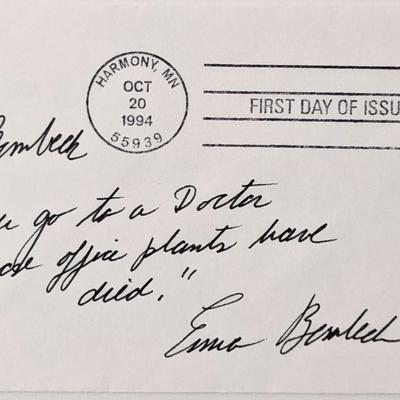 HARMONY, MN
OCT
20
1994
55939
FIRST DAY OF ISSU
Bombeck
go to a Doctor
ose office plants have
died."
Erma Bombeck